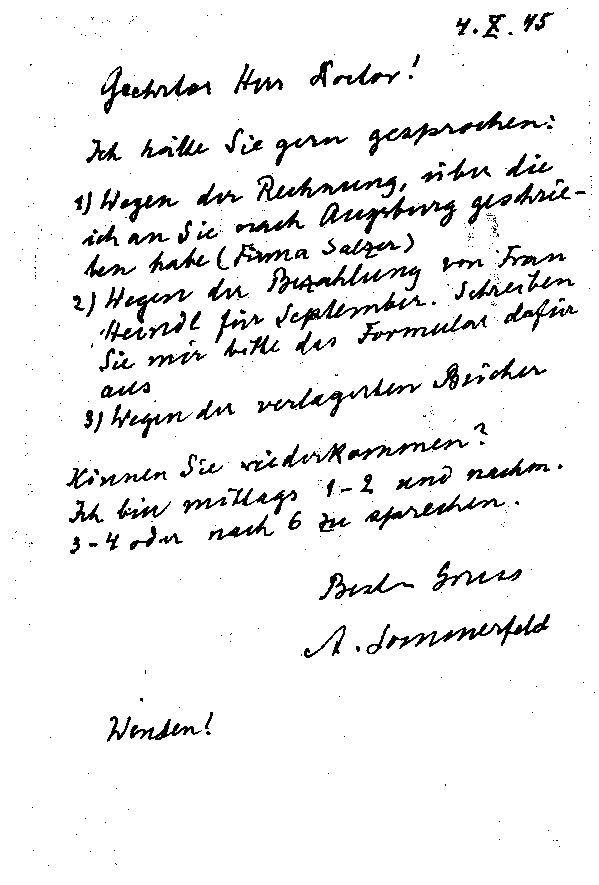 4. X. 45
Geehrter Herr Doctor!
Ich hätte Sie gern gesprochen:
1) Wegen der Rechnung, über die
ich an Sie nach Augsburg geschrie-
ben habe (Firma Salzer)
2) Wegen der Bezahlung von Frau
Heindl für September. Schreiben
Sie mir bitte das Formular dafür
aus
3) Wegen der verlagerten Bücher
Können Sie wiederkommen?
Ich bin mittags 1-2 und nachm.
3-4 oder nach 6 zu sprechen.
Besten Gruss
A. Sommerfeld
Wenden!